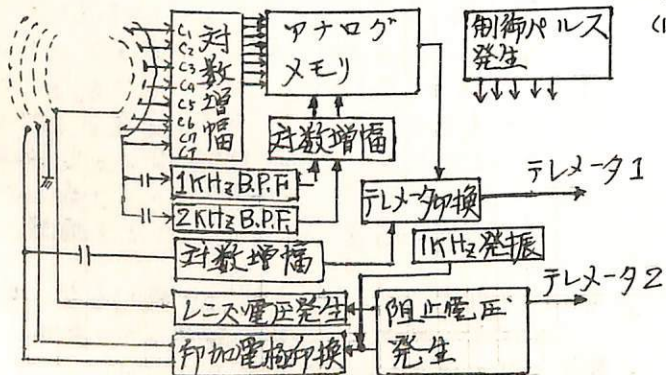 C1
C2
C3
C4
C5
C6
C7
対数増幅
アナログ
メモリ
制御パルス
発生
(1
対数増幅
1KHz B.P.F.
2KHz B.P.F.
テレメータ切換
テレメータ1
対数増幅
1KHz発振
レンズ電圧発生
阻止電圧
発生
テレメータ2
印加電極切換